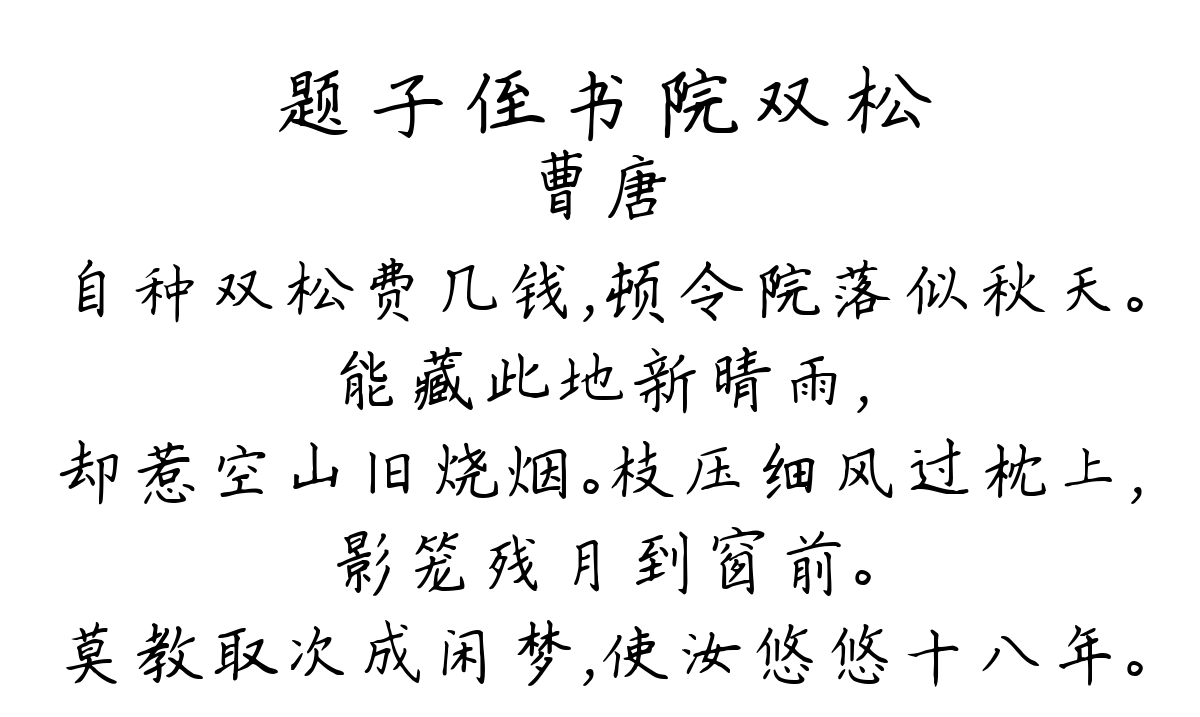 题子侄书院双松
曹唐
自种双松费几钱,顿令院落似秋天。
能藏此地新晴雨,
却惹空山旧烧烟。枝压细风过枕上,
影笼残月到窗前。
莫教取次成闲梦,使汝悠悠十八年。